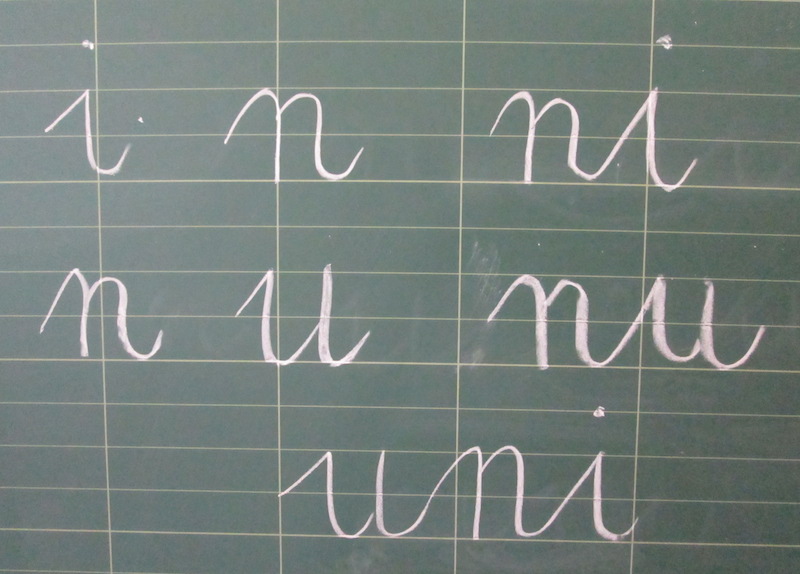 i n ni
n u nu
uni